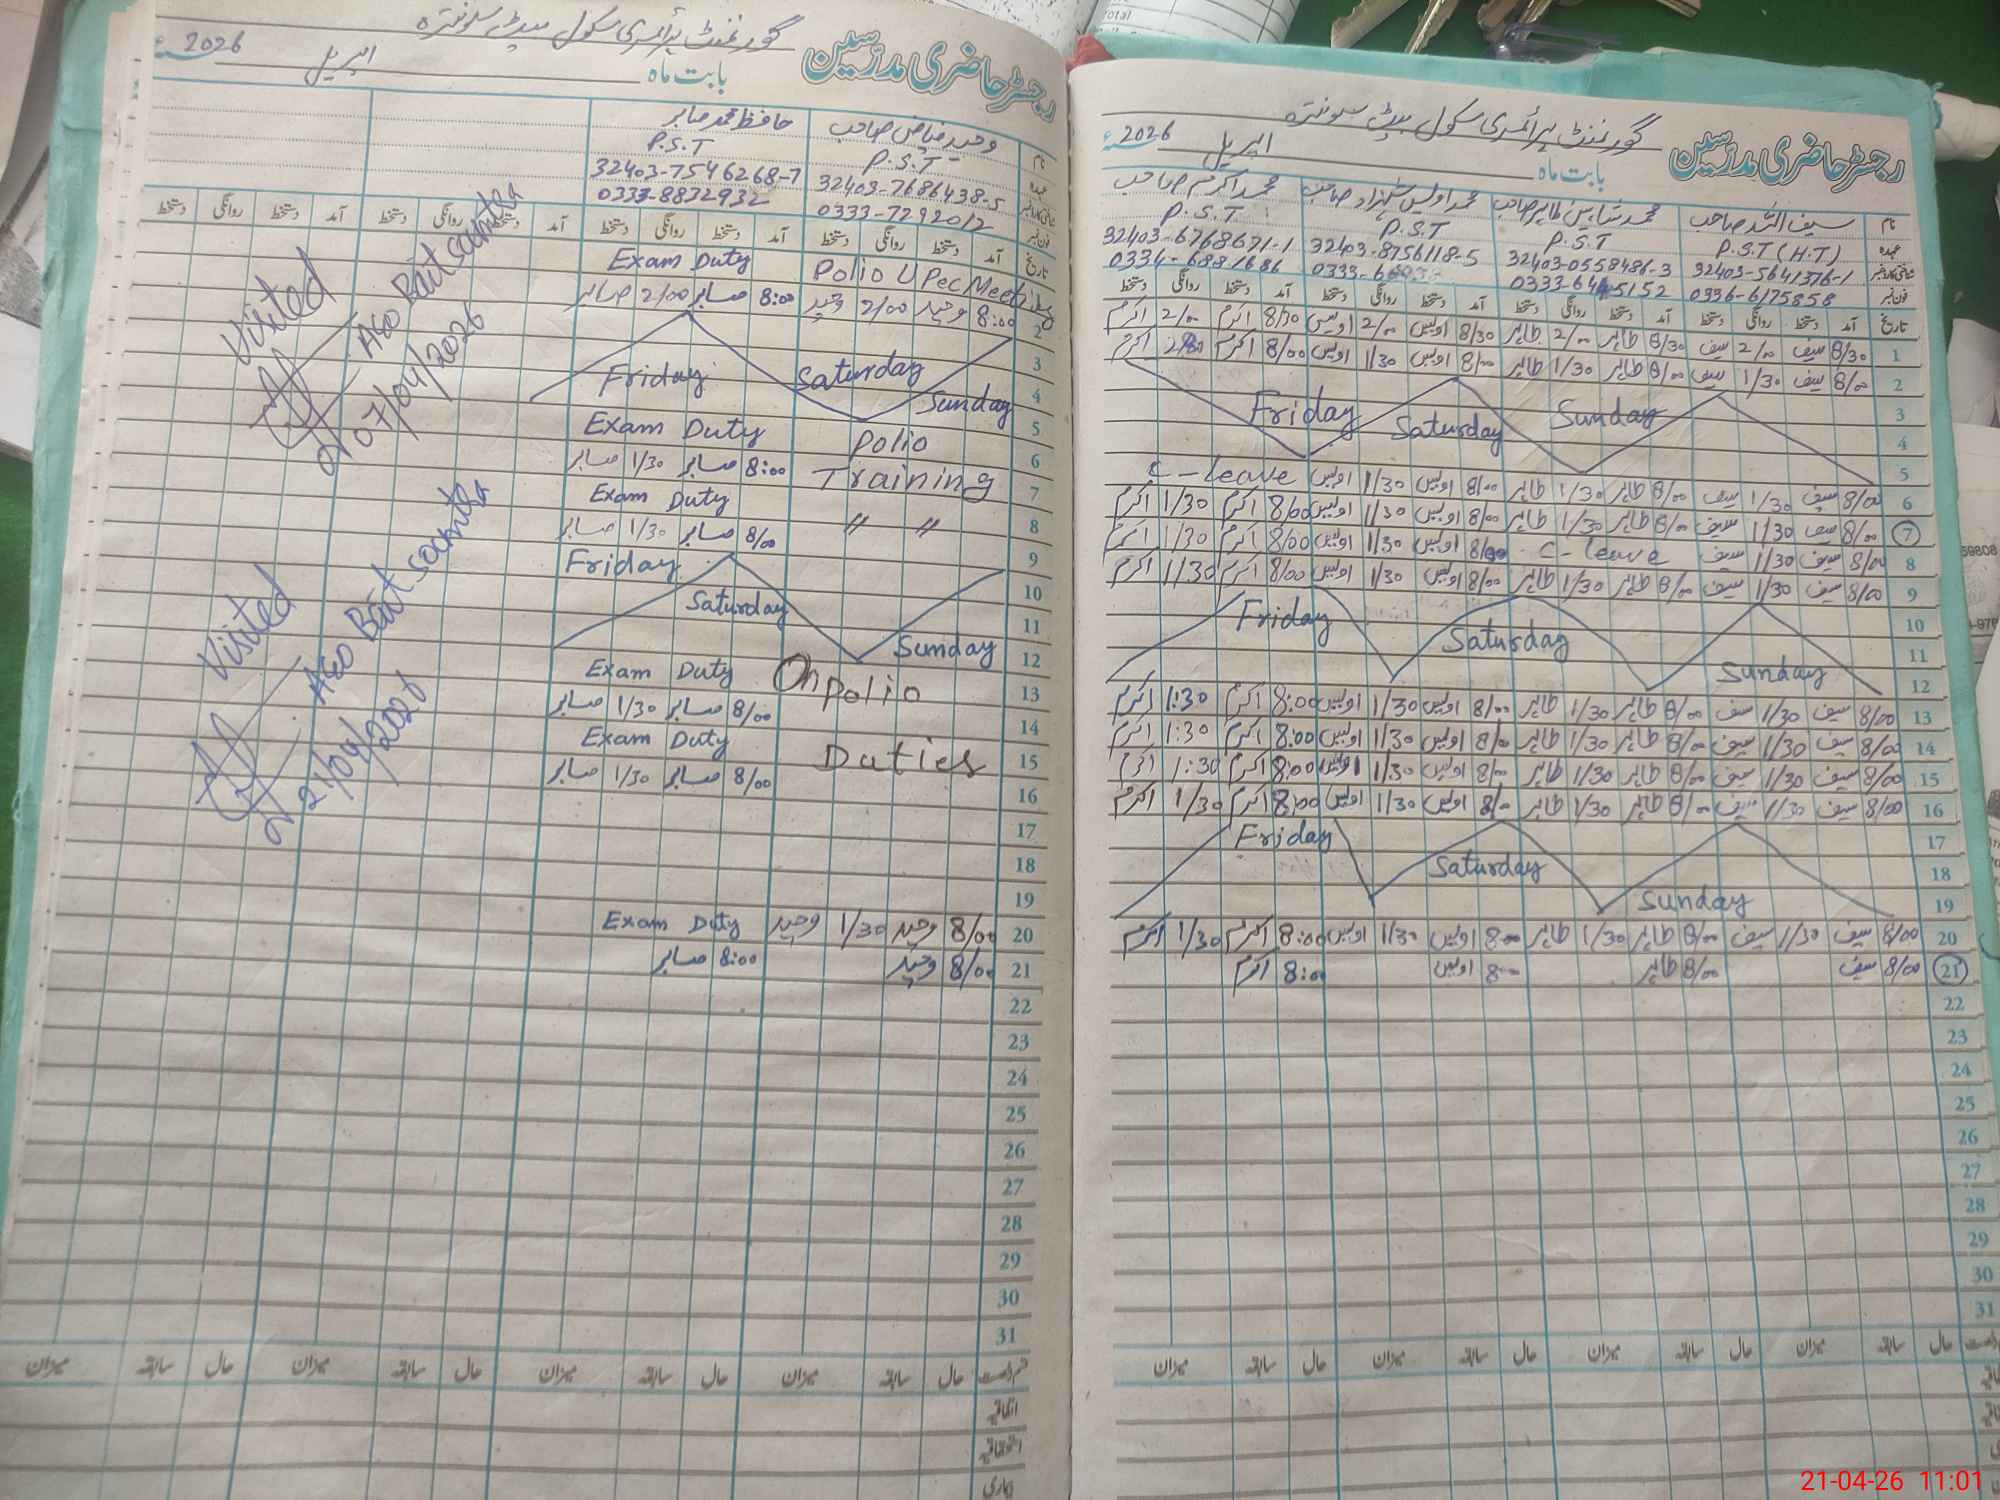 رجسٹر حاضری مدرسین
گورنمنٹ پرائمری سکول بیٹ سونترہ
بابت ماہ اپریل 2026ء
نام سیف اللہ صاحب محمد شاہین طاہر صاحب محمد اویس شہزاد صاحب محمد اکرم صاحب
عہدہ P.S.T (H.T) P.S.T P.S.T P.S.T
شناختی کارڈ نمبر 32403-5641376-1 32403-0558486-3 32403-8756118-5 32403-6768671-1
فون نمبر 0336-6175858 0333-6445152 0333-6 0334-6881686
تاریخ آمد دستخط روانگی دستخط آمد دستخط روانگی دستخط آمد دستخط روانگی دستخط آمد دستخط روانگی دستخط
1 8/30 سیف 2/00 سیف 8/30 طاہر 2/00 طاہر 8/30 اویس 2/00 اویس 8/30 اکرم 2/00 اکرم
2 8/00 سیف 1/30 سیف 8/00 طاہر 1/30 طاہر 8/00 اویس 1/30 اویس 8/00 اکرم اکرم
3 Friday
4 Saturday Sunday
5
6 8/00 سیف 1/30 سیف 8/00 طاہر 1/30 طاہر 8/00 اویس 1/30 اویس C-leave
7 8/00 سیف 1/30 سیف 8/00 طاہر 1/30 طاہر 8/00 اویس 1/30 اویس 8/00 اکرم 1/30 اکرم
8 8/00 سیف 1/30 سیف C-leave 8/00 اویس 1/30 اویس 8/00 اکرم 1/30 اکرم
9 8/00 سیف 1/30 سیف 8/00 طاہر 1/30 طاہر 8/00 اویس 1/30 اویس 8/00 اکرم 1/30 اکرم
10 Friday
11 Saturday
12 Sunday
13 8/00 سیف 1/30 سیف 8/00 طاہر 1/30 طاہر 8/00 اویس 1/30 اویس 8:00 اکرم 1:30 اکرم
14 8/00 سیف 1/30 سیف 8/00 طاہر 1/30 طاہر 8/00 اویس 1/30 اویس 8:00 اکرم 1:30 اکرم
15 8/00 سیف 1/30 سیف 8/00 طاہر 1/30 طاہر 8/00 اویس 1/30 اویس 8:00 اکرم 1:30 اکرم
16 8/00 سیف 1/30 سیف 8/00 طاہر 1/30 طاہر 8/00 اویس 1/30 اویس 8:00 اکرم 1/30 اکرم
17 Friday
18 Saturday
19 Sunday
20 8/00 سیف 1/30 سیف 8/00 طاہر 1/30 طاہر 8:00 اویس 1/30 اویس 8:00 اکرم 1/30 اکرم
21 8/00 سیف 8/00 طاہر 8:00 اویس 8:00 اکرم
22
23
24
25
26
27
28
29
30
31
حال سابقہ میزان حال سابقہ میزان حال سابقہ میزان حال سابقہ میزان
رجسٹر حاضری مدرسین
گورنمنٹ پرائمری سکول بیٹ سونترہ
بابت ماہ اپریل 2026ء
نام وحید ریاض صاحب حافظ محمد صابر
عہدہ P.S.T P.S.T
شناختی کارڈ نمبر 32403-7686438-5 32403-7546268-7
فون نمبر 0333-7292012 0333-8872932
تاریخ آمد دستخط روانگی دستخط آمد دستخط روانگی دستخط آمد دستخط روانگی دستخط آمد دستخط روانگی دستخط
Polio UPec Meeting Exam Duty
2 8:00 وحید 2/00 وحید 8:00 صابر 2/00 صابر
3 Saturday Friday
4 Sunday
5 Polio Exam Duty
6 Training 8:00 صابر 1/30 صابر
7 Exam Duty
8 〃 〃 8/00 صابر 1/30 صابر
9 Friday
10 Saturday
11
12 Sunday
13 On Polio Exam Duty
14 8/00 صابر 1/30 صابر
15 Duties Exam Duty
16 8/00 صابر 1/30 صابر
17
18
19
20 8/00 وحید 1/30 وحید Exam Duty
21 8/00 وحید 8:00 صابر
22
23
24
25
26
27
28
29
30
31
قسم رخصت حال سابقہ میزان حال سابقہ میزان حال سابقہ میزان حال سابقہ میزان
اتفاقیہ
استحقاقیہ
بیماری
Visited
AEO Bait sountra
07/04/2026
Visited
AEO Bait sountra
21/04/2026
21-04-26 11:01